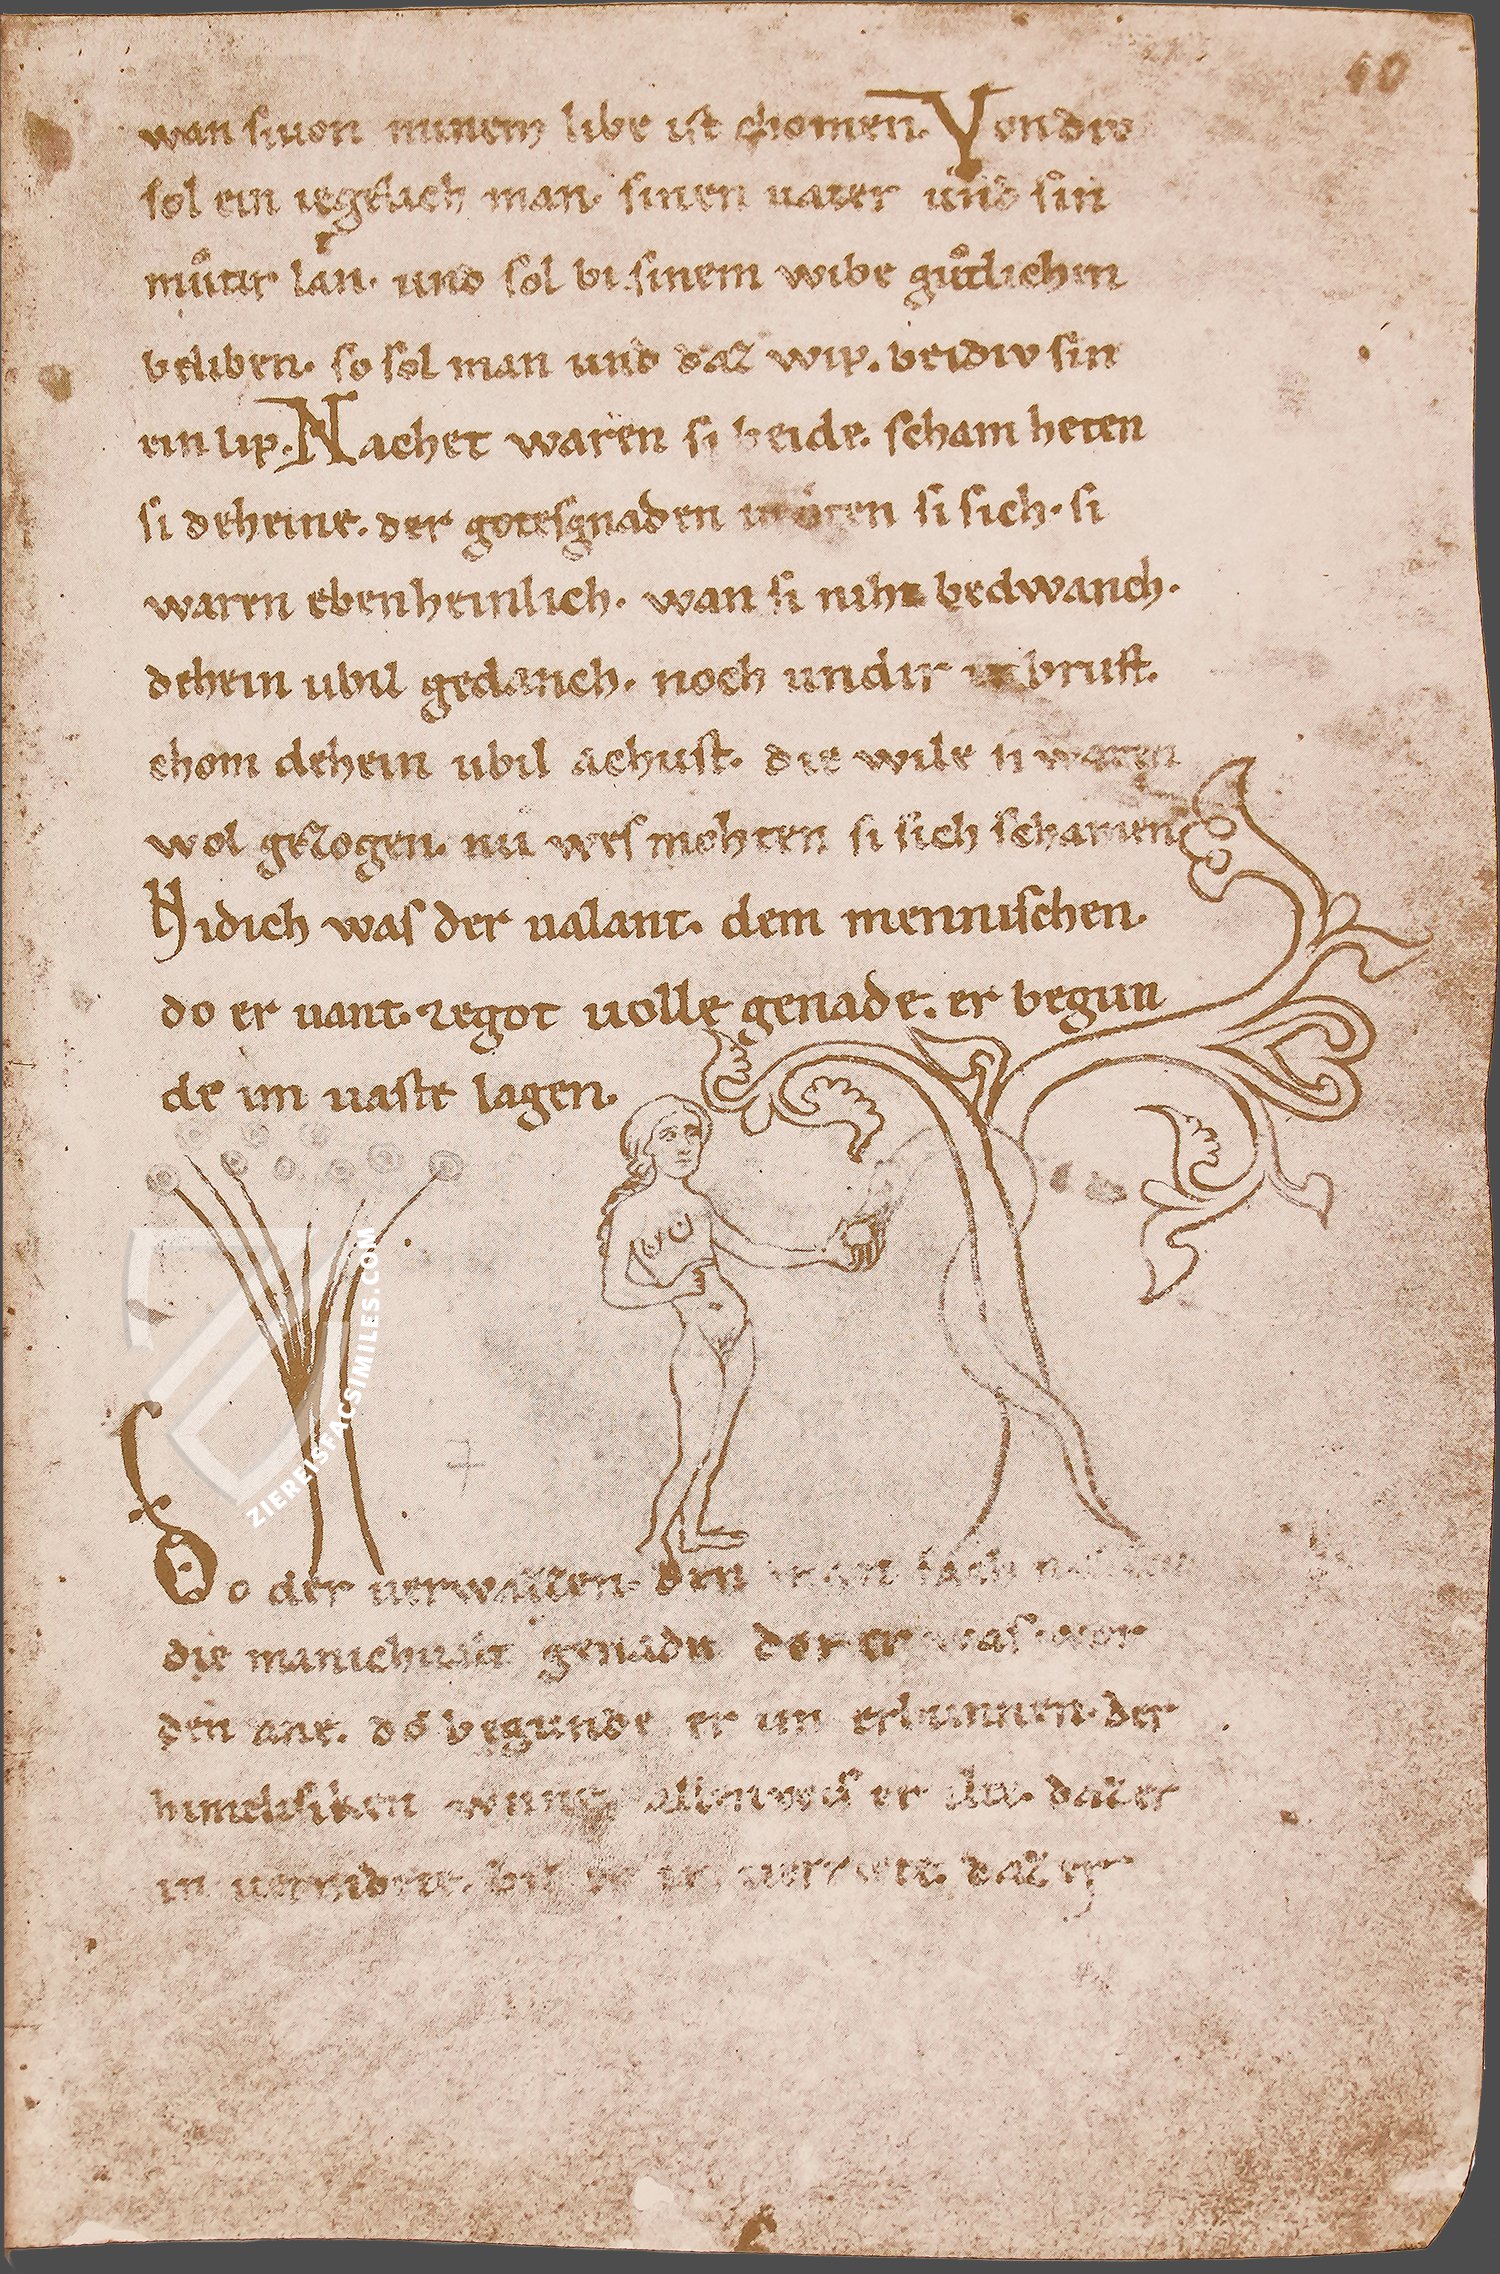 10
wan si uon minem libe ist chomen. Von div
sol ein iegelich man. sinen uater und sin
můtir lan. und sol bi sinem wibe gůtlichin
beliben. so sol man und daz wip. beidiv sin
ein lip. Nachet waren si beide. scham heten
si deheine. der gotesgnaden si sich. si
waren ebenheinlich. wan si niht bedwanch.
dehein ubil gedanch. noch undir ir brust.
chom dehein ubil achust. die wile si waren
wol gezogen. nu wes mohten si sich schamen
Nidich was der ualant. dem mennischen.
do er uant. ze got uolle genade. er begun
de im uaste lagen.
ZIEREISFACSIMILES.COM
Do der uerwazzen. den man sach
die manichualt genade der er was. wor
den ane. do begunde er im erbunnen. der
himelisken wunne er daz er
in daz er